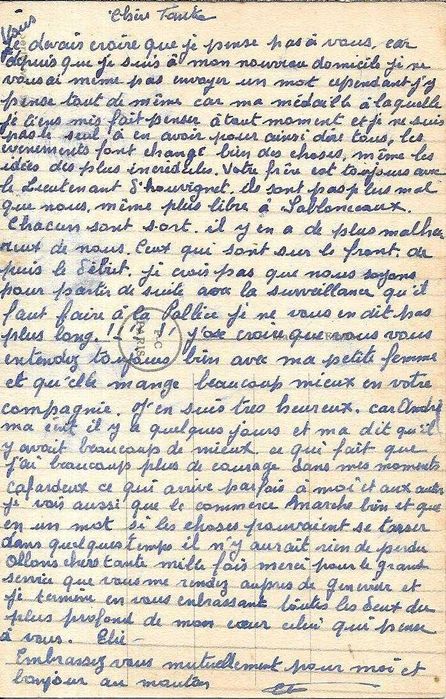 Chère Tante
Vous
devais croire que je pense pas à vous, car
depuis que je suis à mon nouveau domicile je ne
vous ai même pas envoyer un mot cependant j'y
pense tout de même car ma médaille à laquelle
je tiens mis fait penser à tout moment et je ne suis
pas le seul, à en avoir pour ainsi dire tous, les
évènements font changé bien des choses, même les
idées des plus incrédules. Votre frère est toujours avec
le Lieutenant ils sont pas plus mal
que nous, même plus libre à Sablonceaux.
Chacun sont sort. il y en a de plus malheu
reux de nous. Ceux qui sont sur le front. de
puis le début. je crois pas que nous soyons
pour partir de suite avec la surveillance qu'il
faut faire à la Pallice je ne vous en dit pas
plus long.!! j'ose croire que vous vous
entendez toujours bien avec ma petite femme
et qu'elle mange beaucoup mieux en votre
compagnie. J'en suis très heureux. car André
ma écrit il y a quelques jours et ma dit qu'il
y avait beaucoup de mieux. ce qui fait que
j'ai beaucoup plus de courage dans mes moments
cafardeux ce qui arrive parfois à moi et aux autres
je vois aussi que le commerce marche bien et que
en un mot si les choses pouvaient se tasser
dans quelques temps il n'y aurait rien de perdu
Allons chers tante mille fois merci pour le grand
service que vous me rendez auprès de et
je termine en vous embrassant toutes les deux du
plus profond de mon cœur celui qui pense
à vous. Elie -
Embrassez vous mutuellement pour moi et
bonjour au